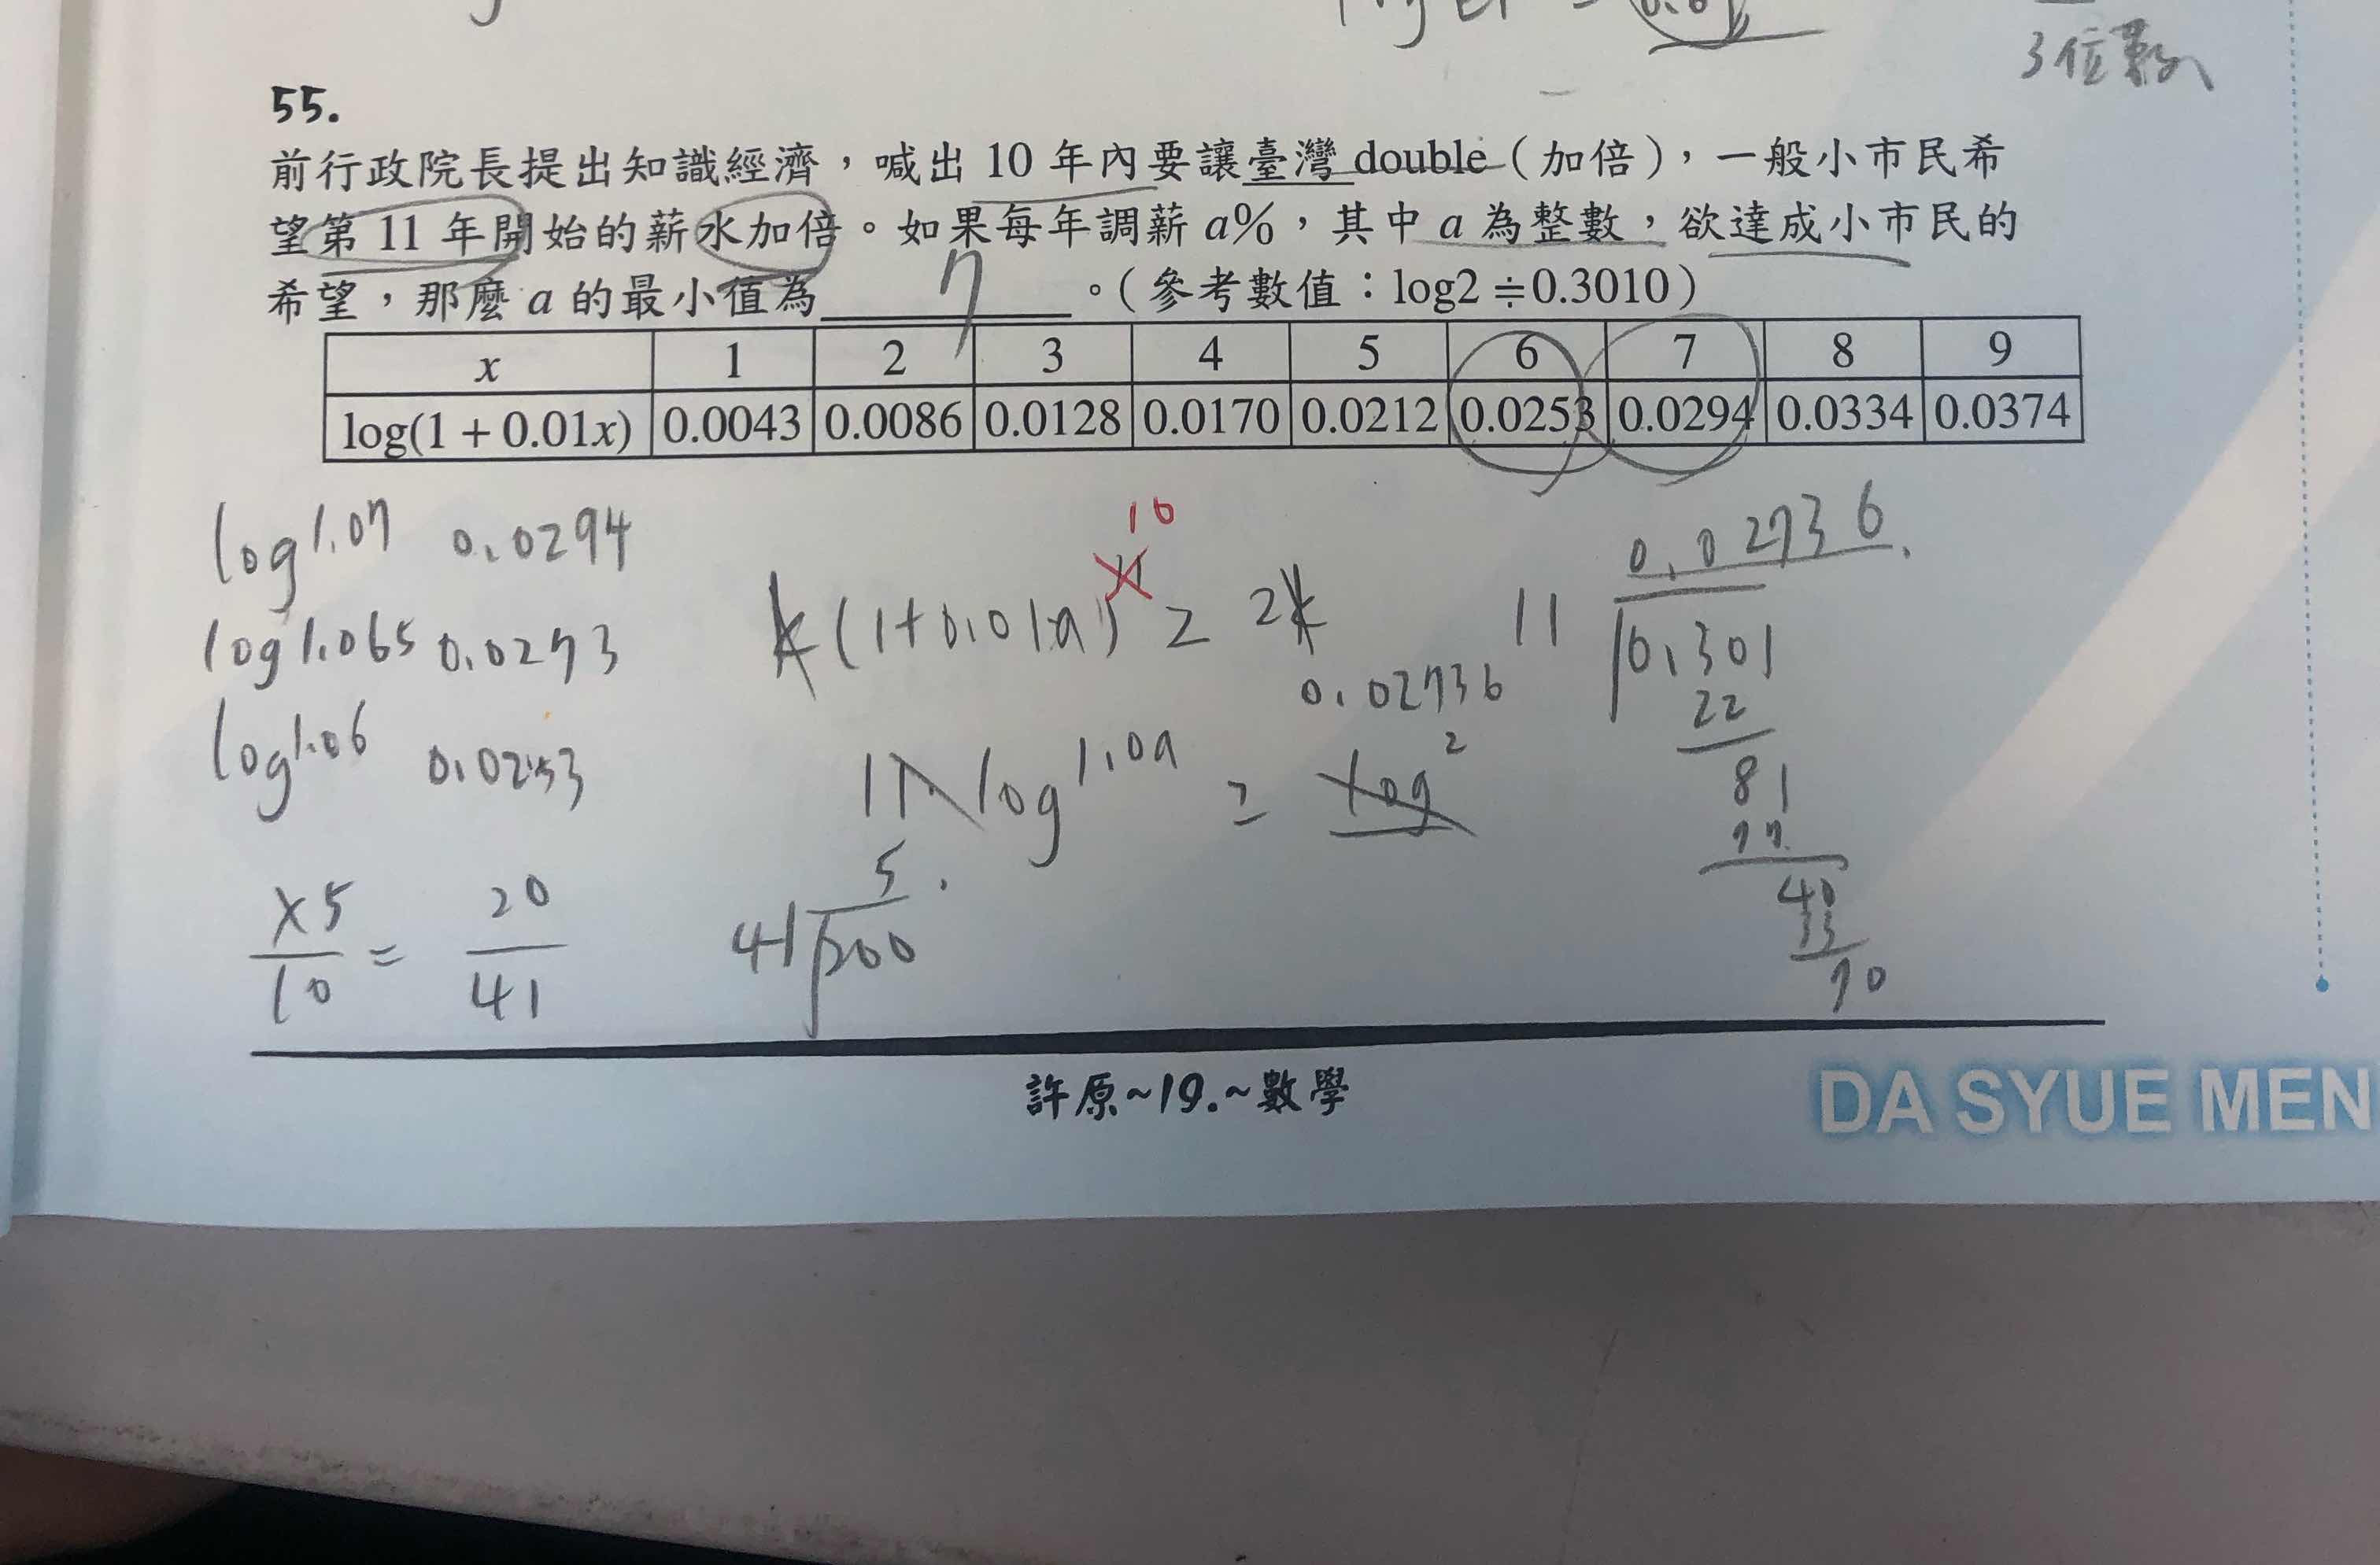 3位數
55.
前行政院長提出知識經濟，喊出 10 年內要讓臺灣 double（加倍），一般小市民希
望第 11 年開始的薪水加倍。如果每年調薪 a%，其中 a 為整數，欲達成小市民的
希望，那麼 a 的最小值為 7 。（參考數值：log2≒0.3010）
x 1 2 3 4 5 6 7 8 9
log(1+0.01x) 0.0043 0.0086 0.0128 0.0170 0.0212 0.0253 0.0294 0.0334 0.0374
log1.07 0.0294
log1.065 0.0273
log1.06 0.0253
x5/10 = 20/41
10
k(1+0.01a) = 2k
0.02736
11 log1.0a = log2
5.
41 200
0.02736
11 0.301
22
81
77
40
33
70
許原~19.~數學
DA SYUE MEN